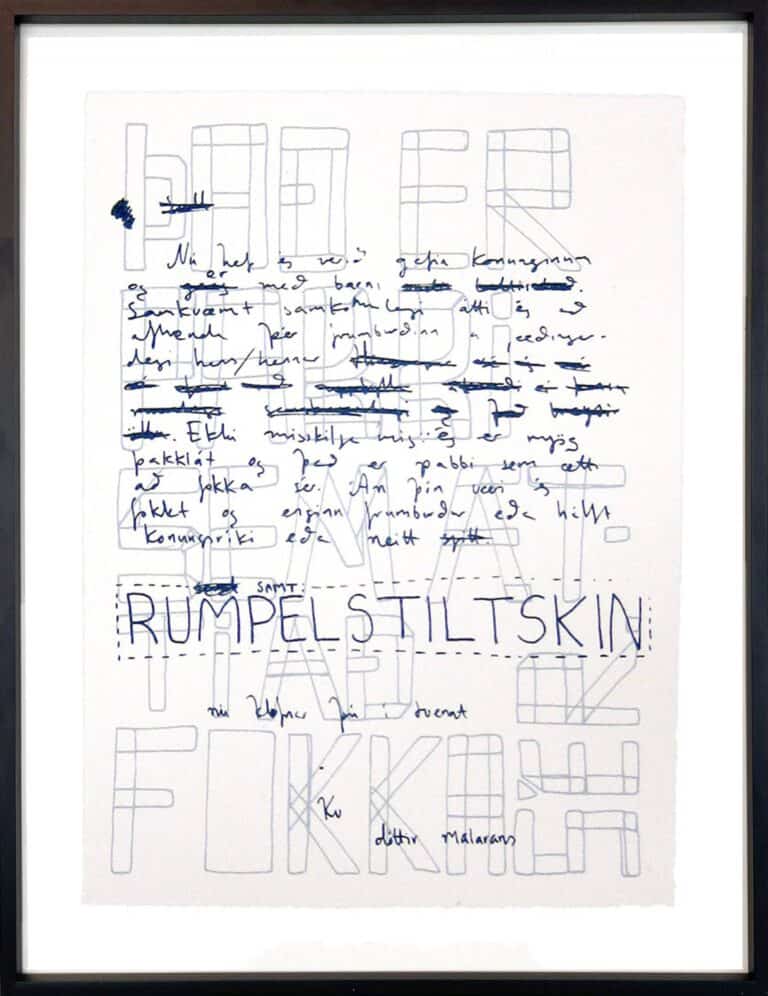 ÞAÐ ER
PABBI
SEM ÆT-
TI AÐ
FOKKA SÉR
Nú hef ég verið gefin konunginum
og er með barni
Samkvæmt samkomulagi átti ég að
afhenda þér frumburðinn á fæðingar-
degi hans/hennar
. Ekki misskilja mig: ég er mjög
þakklát og það er pabbi sem ætti
að fokka sér. Án þín væri ég
fokket og enginn frumburður eða hálft
konungsríki eða neitt
SAMT:
RUMPELSTILTSKIN
nú klofnar þú í tvennt
Kv
dóttir malarans